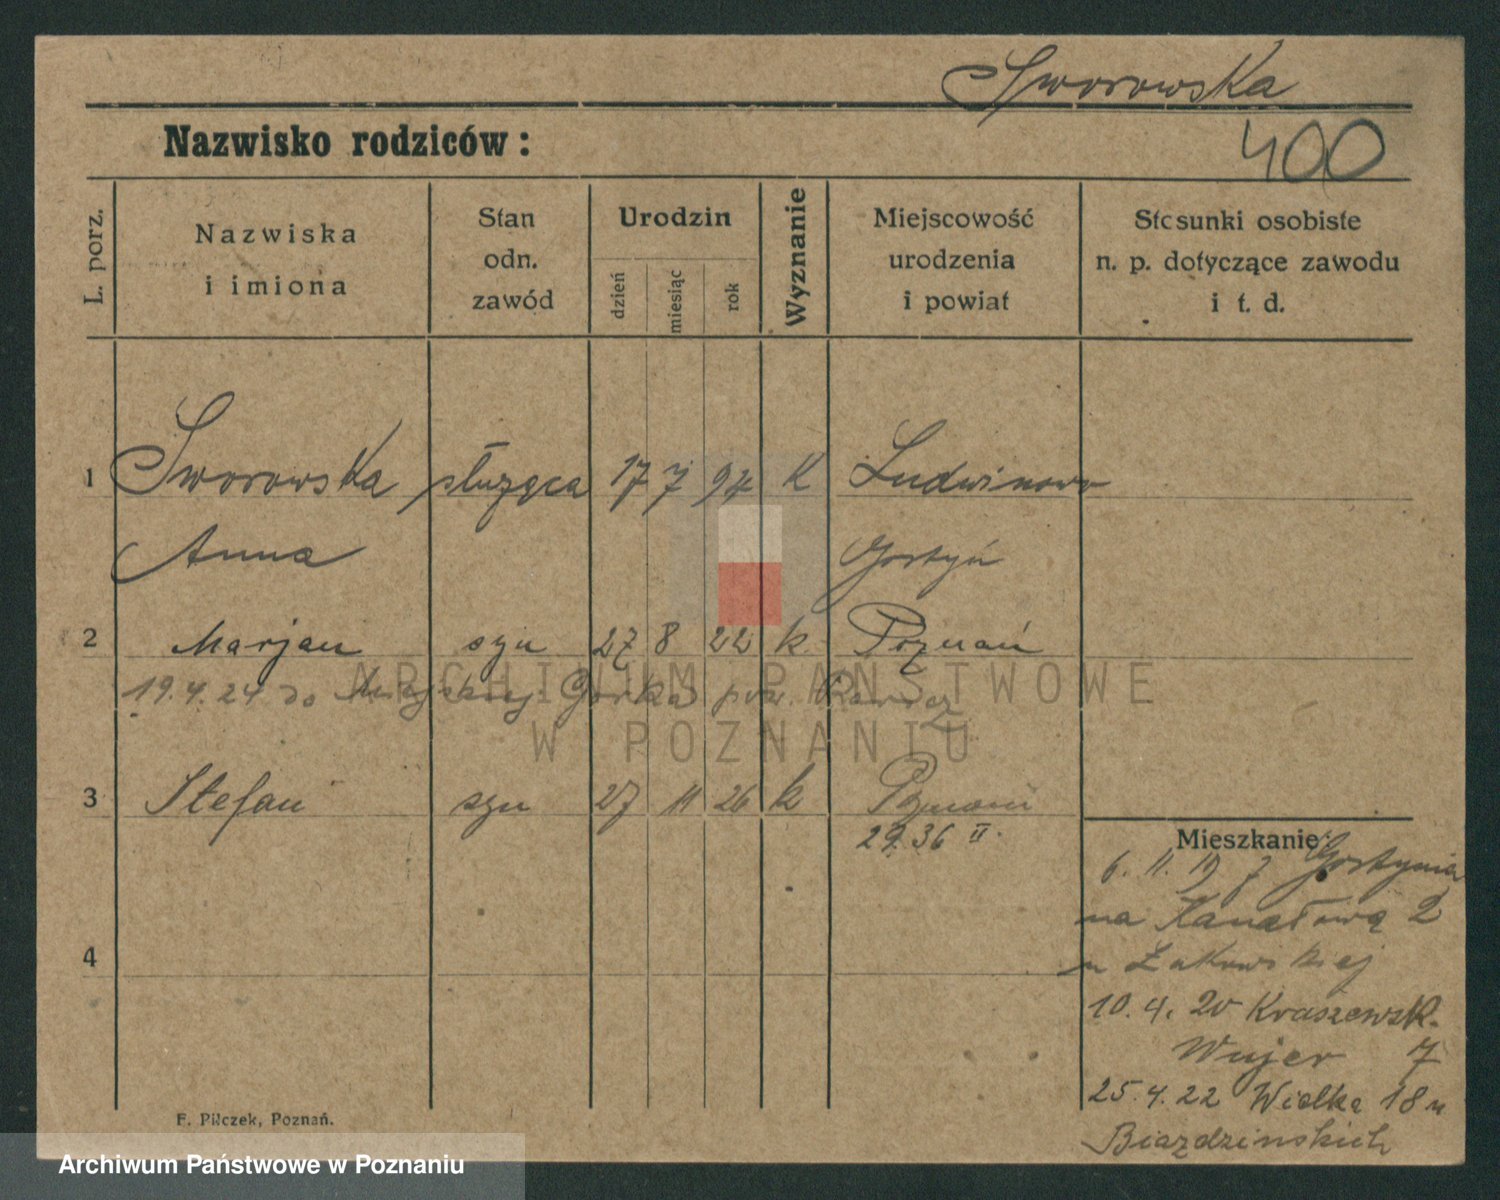 Sworowska
Nazwisko rodziców:
400
L. porz.
Nazwiska
i imiona
Stan
odn.
zawód
Urodzin
dzień
miesiąc
rok
Wyznanie
Miejscowość
urodzenia
i powiat
Stosunki osobiste
n. p. dotyczące zawodu
i t. d.
1 Sworowska służąca 17 7 94 K Ludwinowo
Anna Gostyń
2 Marjan syn 27 8 22 k. Poznań
19.4.24 do Miejskiej Górka pow. Rawicz
ARCHIWUM PAŃSTWOWE
W POZNANIU
3 Stefan syn 27 11 26 k Poznań
29.36 II.
Mieszkanie:
6. 11. 19 z Gostynia
na Kanałową 2
u Łakowskiej
10.4.20 Kraszewsk.
Wujer 7
25.4.22 Wielka 18 u
Biazdzinskich
4
F. Pilczek, Poznań.
Archiwum Państwowe w Poznaniu